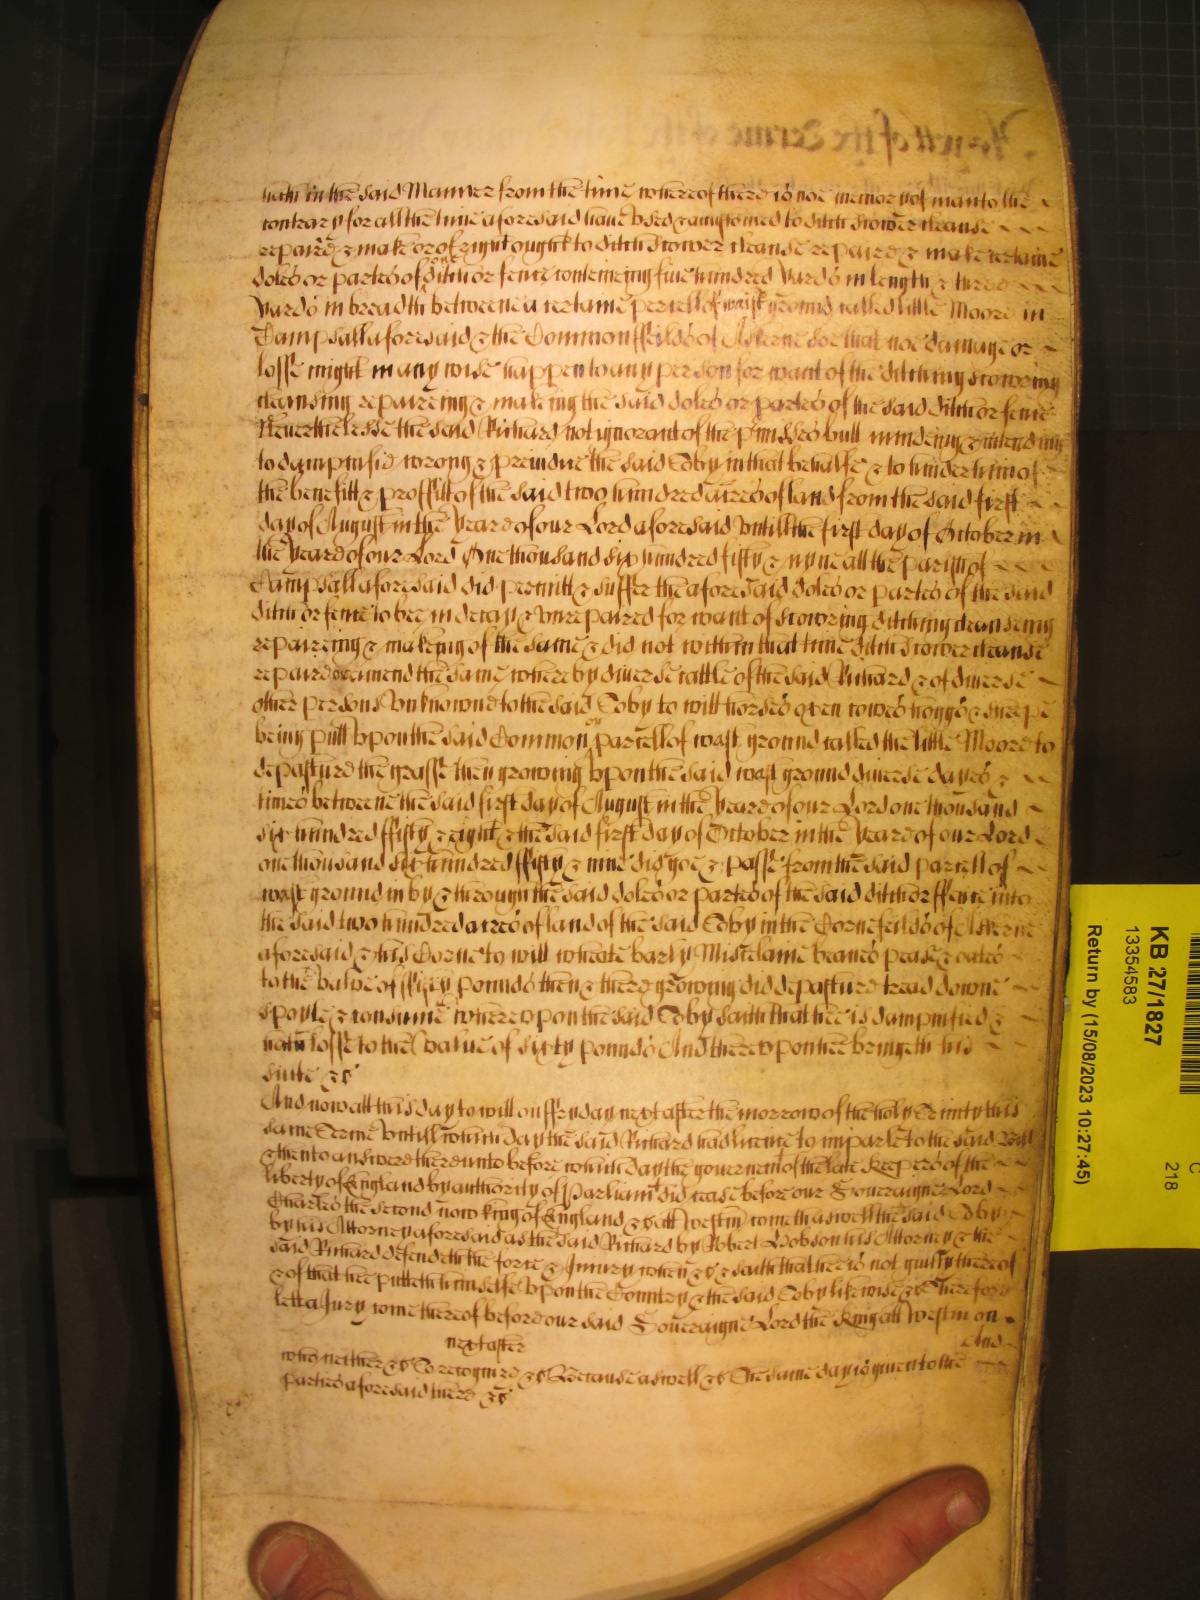 hath in the said Mannor from the time whereof there is noe memory of man to the
contrary for all the time aforesaid have used & accustomed to ditch scower cleanse
repaire & make or of right ought to ditch scower cleanse repaire & make certaine
doles or partes of ditch or fence conteineing five hundred Yards in length & three
Yards in breadth betweene a certaine percell of wast ground called little Moore in
Campsall aforesaid & the Common ffeilds of Askerne soe that noe damage or
losse might in any wise happen to any person for want of the ditching scowring
cleansing repaireing & making the said doles or partes of the said ditch or fence
Neverthelesse the said Richard not ignorant of the p'misses butt mindeing & intending
to dampnifie wrong & preiudice the said Toby in that behalfe & to hinder him of
the benefitt & proffitt of the said two hundred acres of land from the said first
day of August in the Yeare of our Lord aforesaid untill the first day of October in
the Yeare of our Lord One thousand six hundred fifty & nyne att the parish of
Campsall aforesaid did permitt & suffer the aforesaid doles or partes of the said
ditch or fence to bee in decay & unrepaired for want of scowring ditching cleanseing
repaireing & makeing of the same & did not within that time ditch scower cleanse
repaire or amend the same whereby diverse cattle of the said Richard & of diverse
other persons unknowne to the said Toby to witt horses oxen cowes hoggs & sheepe
being putt upon the said Common or parcell of wast ground called the little Moore to
depasture the grasse then growing upon the said wast ground diverse dayes &
times betweene the said first day of August in the Yeare of our Lord one thousand
six hundred ffifty & eight & the said first day of October in the Yeare of our Lord
one thousand six hundred ffifty & nine did goe & passe from the said parcell of
wast ground in by & through the said doles or partes of the said ditch or ffence into
the said two hundred acres of land of the said Toby in the Cornefeilds of Askerne
aforesaid & his Corne to witt wheate barly Misselaine beanes pease & oates
to the value of sixty pounds then & there growing did depasture tread downe
spoyle & consume whereupon the said Toby saith that hee is dampnified &
hath losse to the value of sixty pounds And thereupon hee bringeth his
suite &c
And now att this day to witt on ffryday next after the morrow of the holy Trinity this
same Terme untill which day the said Richard had licence to imparle to the said Bill
& then to answere thereunto before which day the governem't of the late Keepers of the
liberty of England by authority of Parliam't did cease before our Soveraigne Lord
Charles the second now king of England &c att Westm' cometh aswell the said Toby
by his Attorney aforesaid as the said Richard by Robert Hobson his Attorney & the
said Richard defendeth the force & Iniury when &c & saith that hee is not guilty thereof
& of that hee putteth himselfe upon the Countrey & the said Toby likewise &c Therefore
lett a Jury come thereof before our said Soveraigne Lord the King att Westm' on
next after And
who neither &c To recognize &c Because aswell &c The same day is given to the
parties aforesaid there &c
KB 27/1827
13354583
Return by (15/08/2023 10:27:45)
218